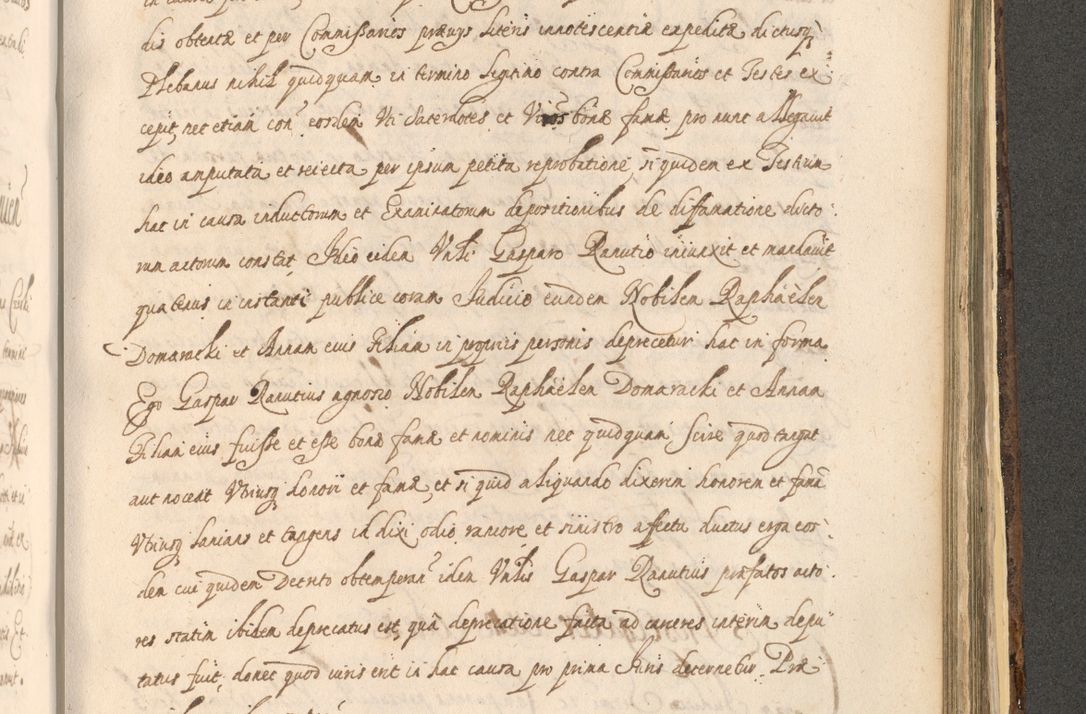 dis obtentæ et per Commissarios prævys literis innotescentiæ expeditæ dictusq
Plebanus nihil quidquam in termino legitimo contra Commissarios et Testes ex
cepit, nec etiam con eosdem Uti Sacerdotes et Viros bonæ famæ pro nunc allegavit
ideo amputata et reiecta per ipsum petita reprobatione, siquidem ex Testium
hac in causa inductorum et Examinatorum depositionibus de diffamatione dicto
rum actorum constat, Ideo eidem Gasparo Ranutio iniunxit et mandavit
quatenus in instanti publice coram Iudicio eundem Nobilem Raphaëlem
Domaracki et Annam eius Filiam in propriis personis deprecetur hac in forma
Ego Gaspar Ranutius agnosco Nobilem Raphaëlem Domaracki et Annam
Filiam eius fuisse et esse bonæ famæ et nominis nec quidquam scire quod tangat
aut noceat Utriusq honori et famæ, et si quid aliquando dixerim honorem et famã
Utriusq lanians et tangens id dixi odio, rancore et sinistro affectu ductus erga eos
dem cui quidem Decreto obtemperan idem Gaspar Ranutius præfatos acto
res statim ibidem deprecatus est, qua deprecatione facta ad carceres interim depu
tatus fuit, donec quod iuris erit in hac causa pro prima Iuris decernetur. Præ